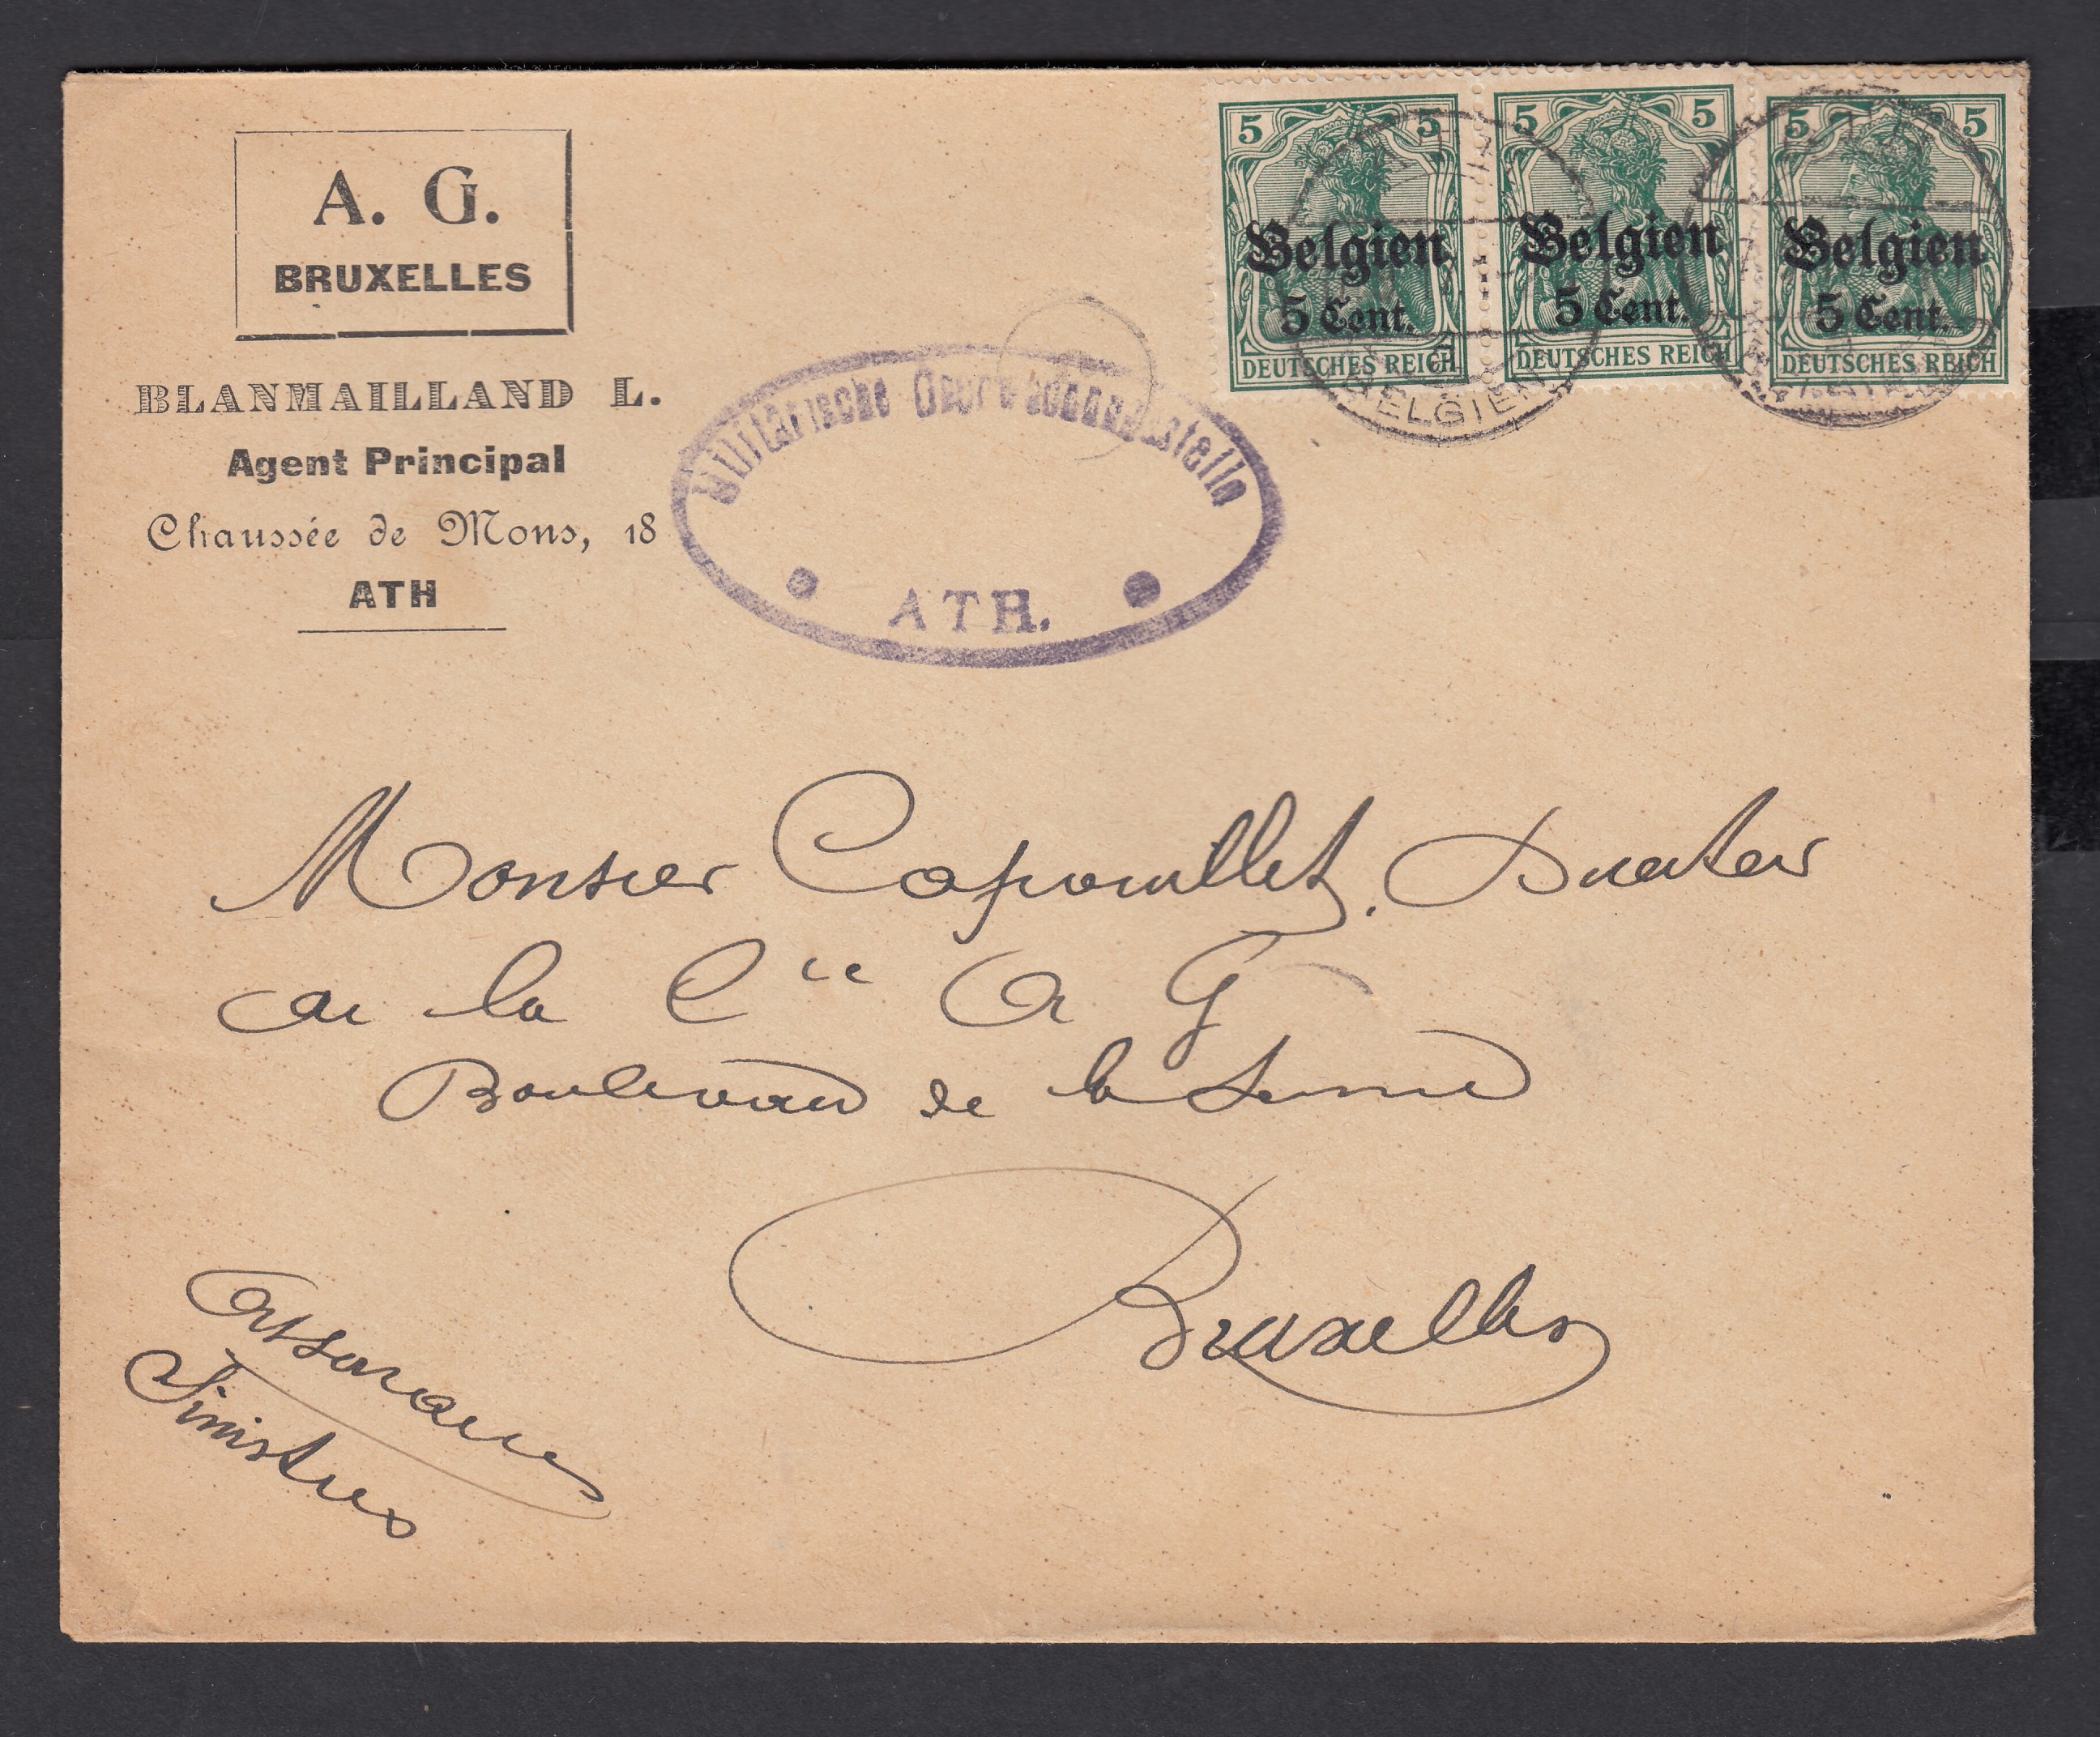 A. G.
BRUXELLES
BLANMAILLAND L.
Agent Principal
Chaussée de Mons, 18
ATH
5 5
Belgien
5 Cent.
DEUTSCHES REICH
5 5
Belgien
5 Cent.
DEUTSCHES REICH
5 5
Belgien
5 Cent.
DEUTSCHES REICH
BELGIEN
Militärische
ATH.
Monsieur Capouillet, Directeur
de la Cie A G
Boulevard de la Senne
Bruxelles
Assurances
Sinistres